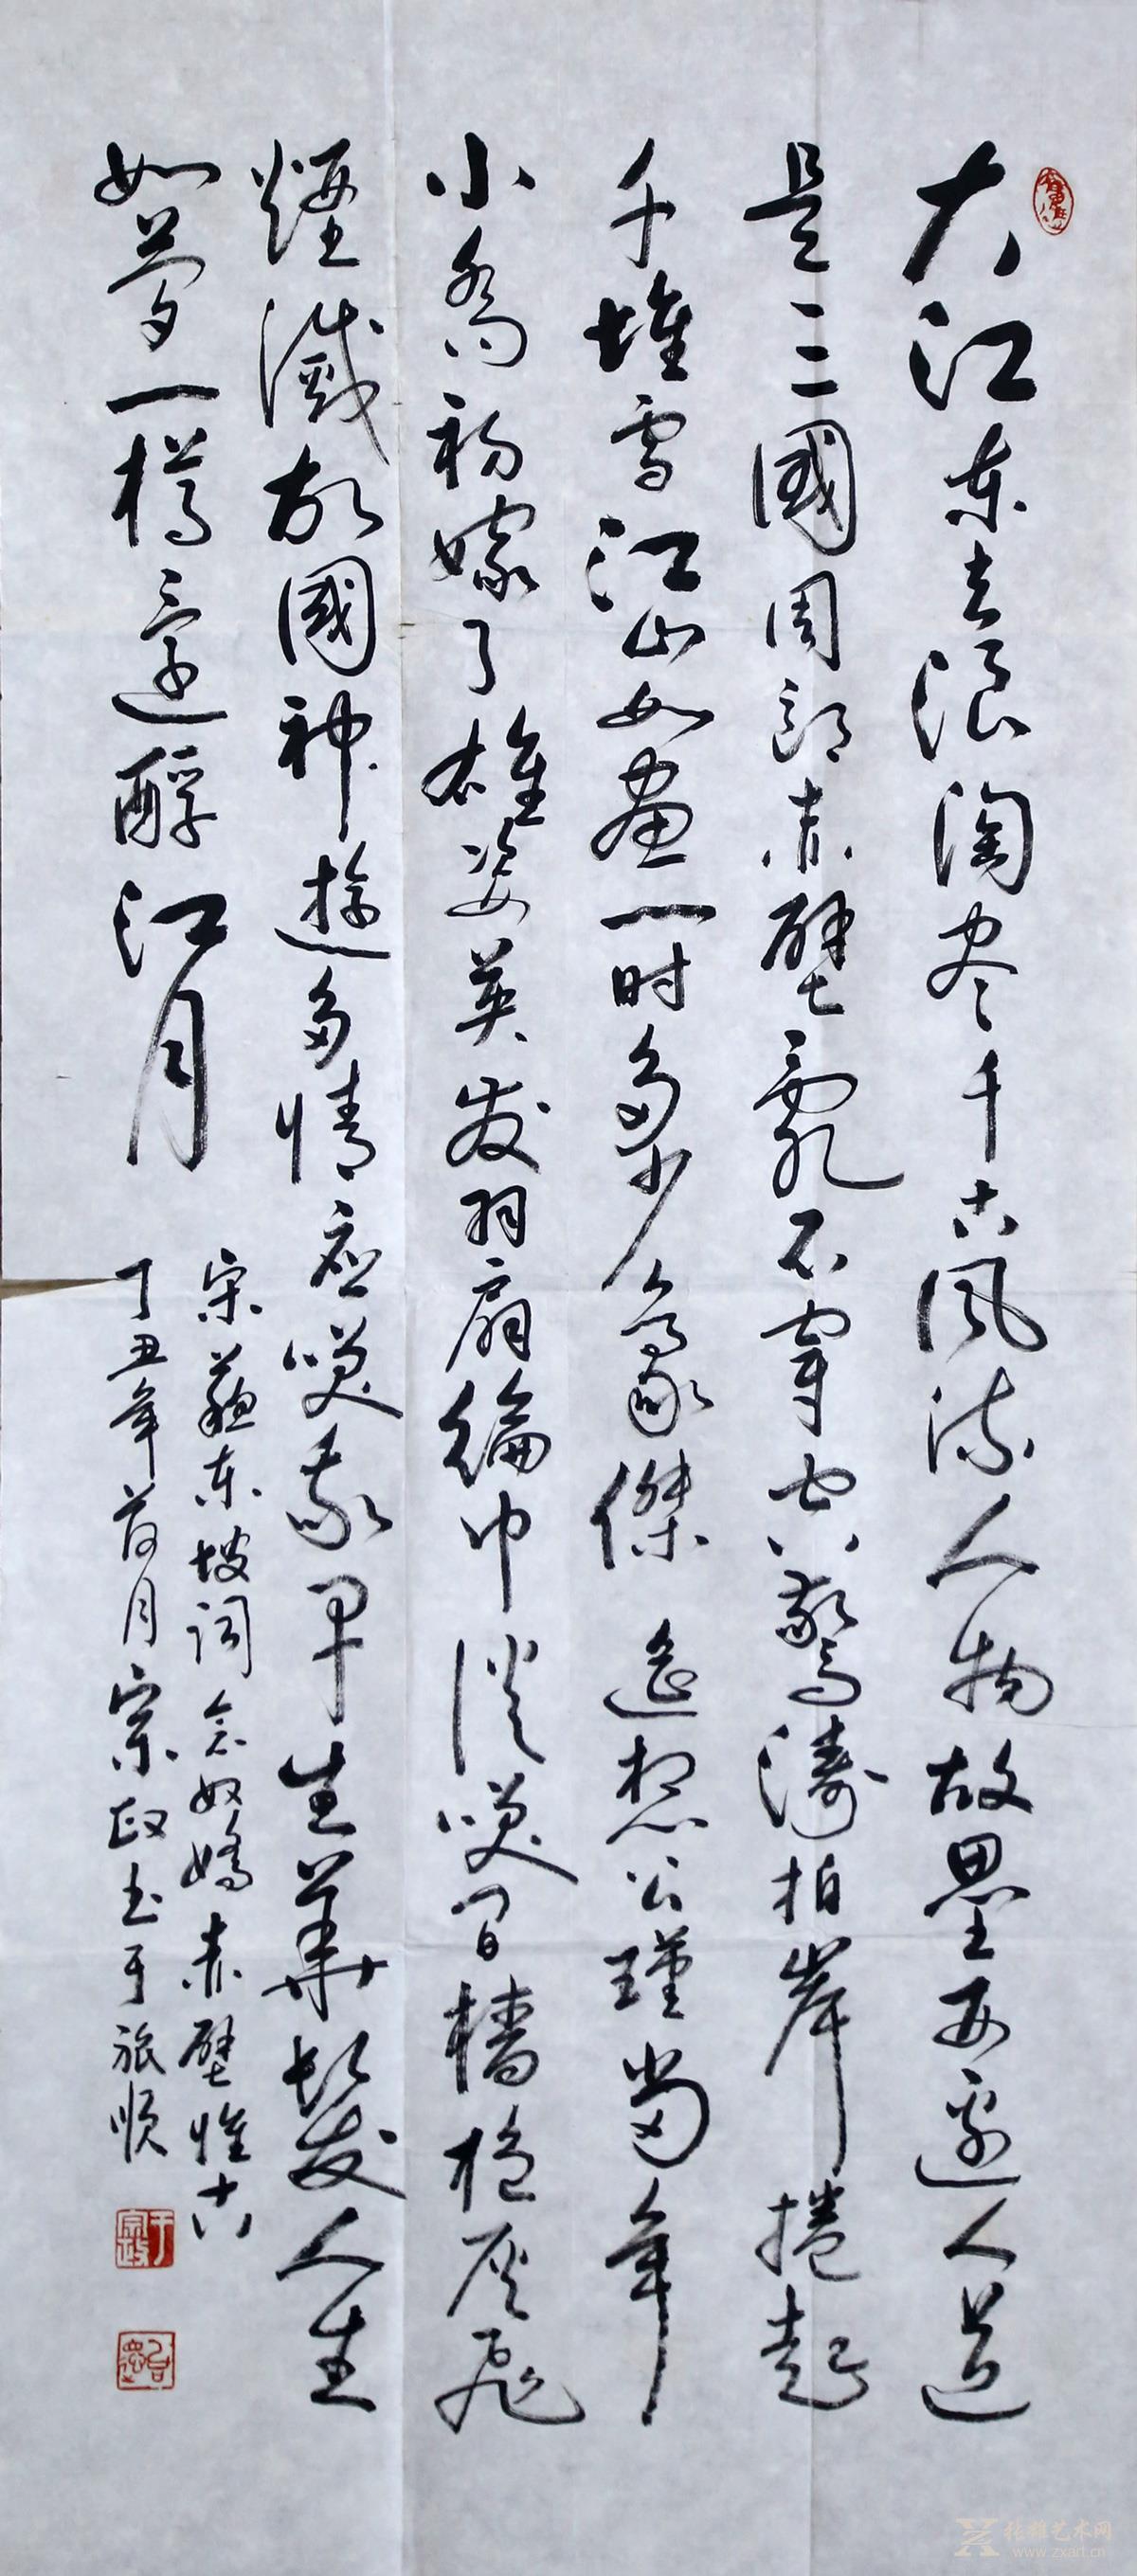 大江东去浪淘尽千古风流人物故垒西邊人道
是三國周郎赤壁亂石穿空驚濤拍岸捲起
千堆雪江山如畫一时多少豪傑遙想公瑾當年
小喬初嫁了雄姿英发羽扇綸巾談笑间檣櫓灰飛
煙滅故國神遊多情应笑我早生華髮人生
如夢一樽還酹江月
宋蘇东坡词念奴嬌赤壁懷古
丁丑年荷月宗政书于旅順
于宗政
www.zxart.cn